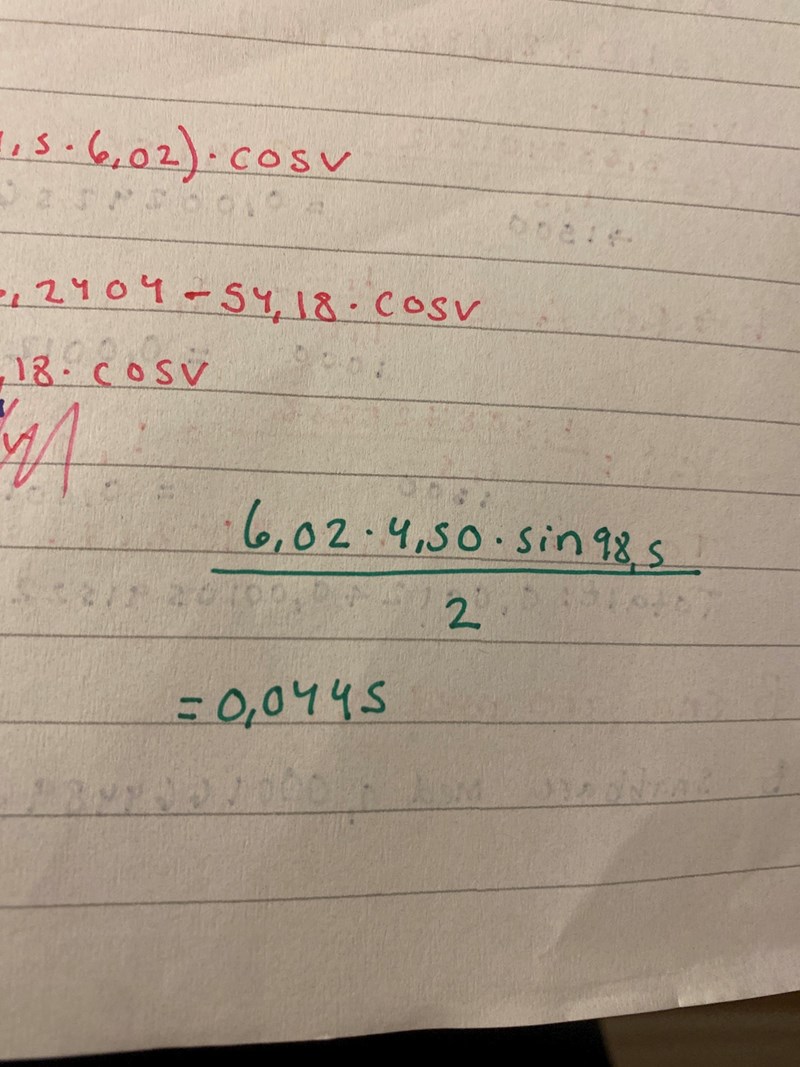 ,5 · 6,02) · cosv
,2404 - 54,18 · cosv
,18 · cosv
6,02 · 4,50 · sin 98,5
2
= 0,0445